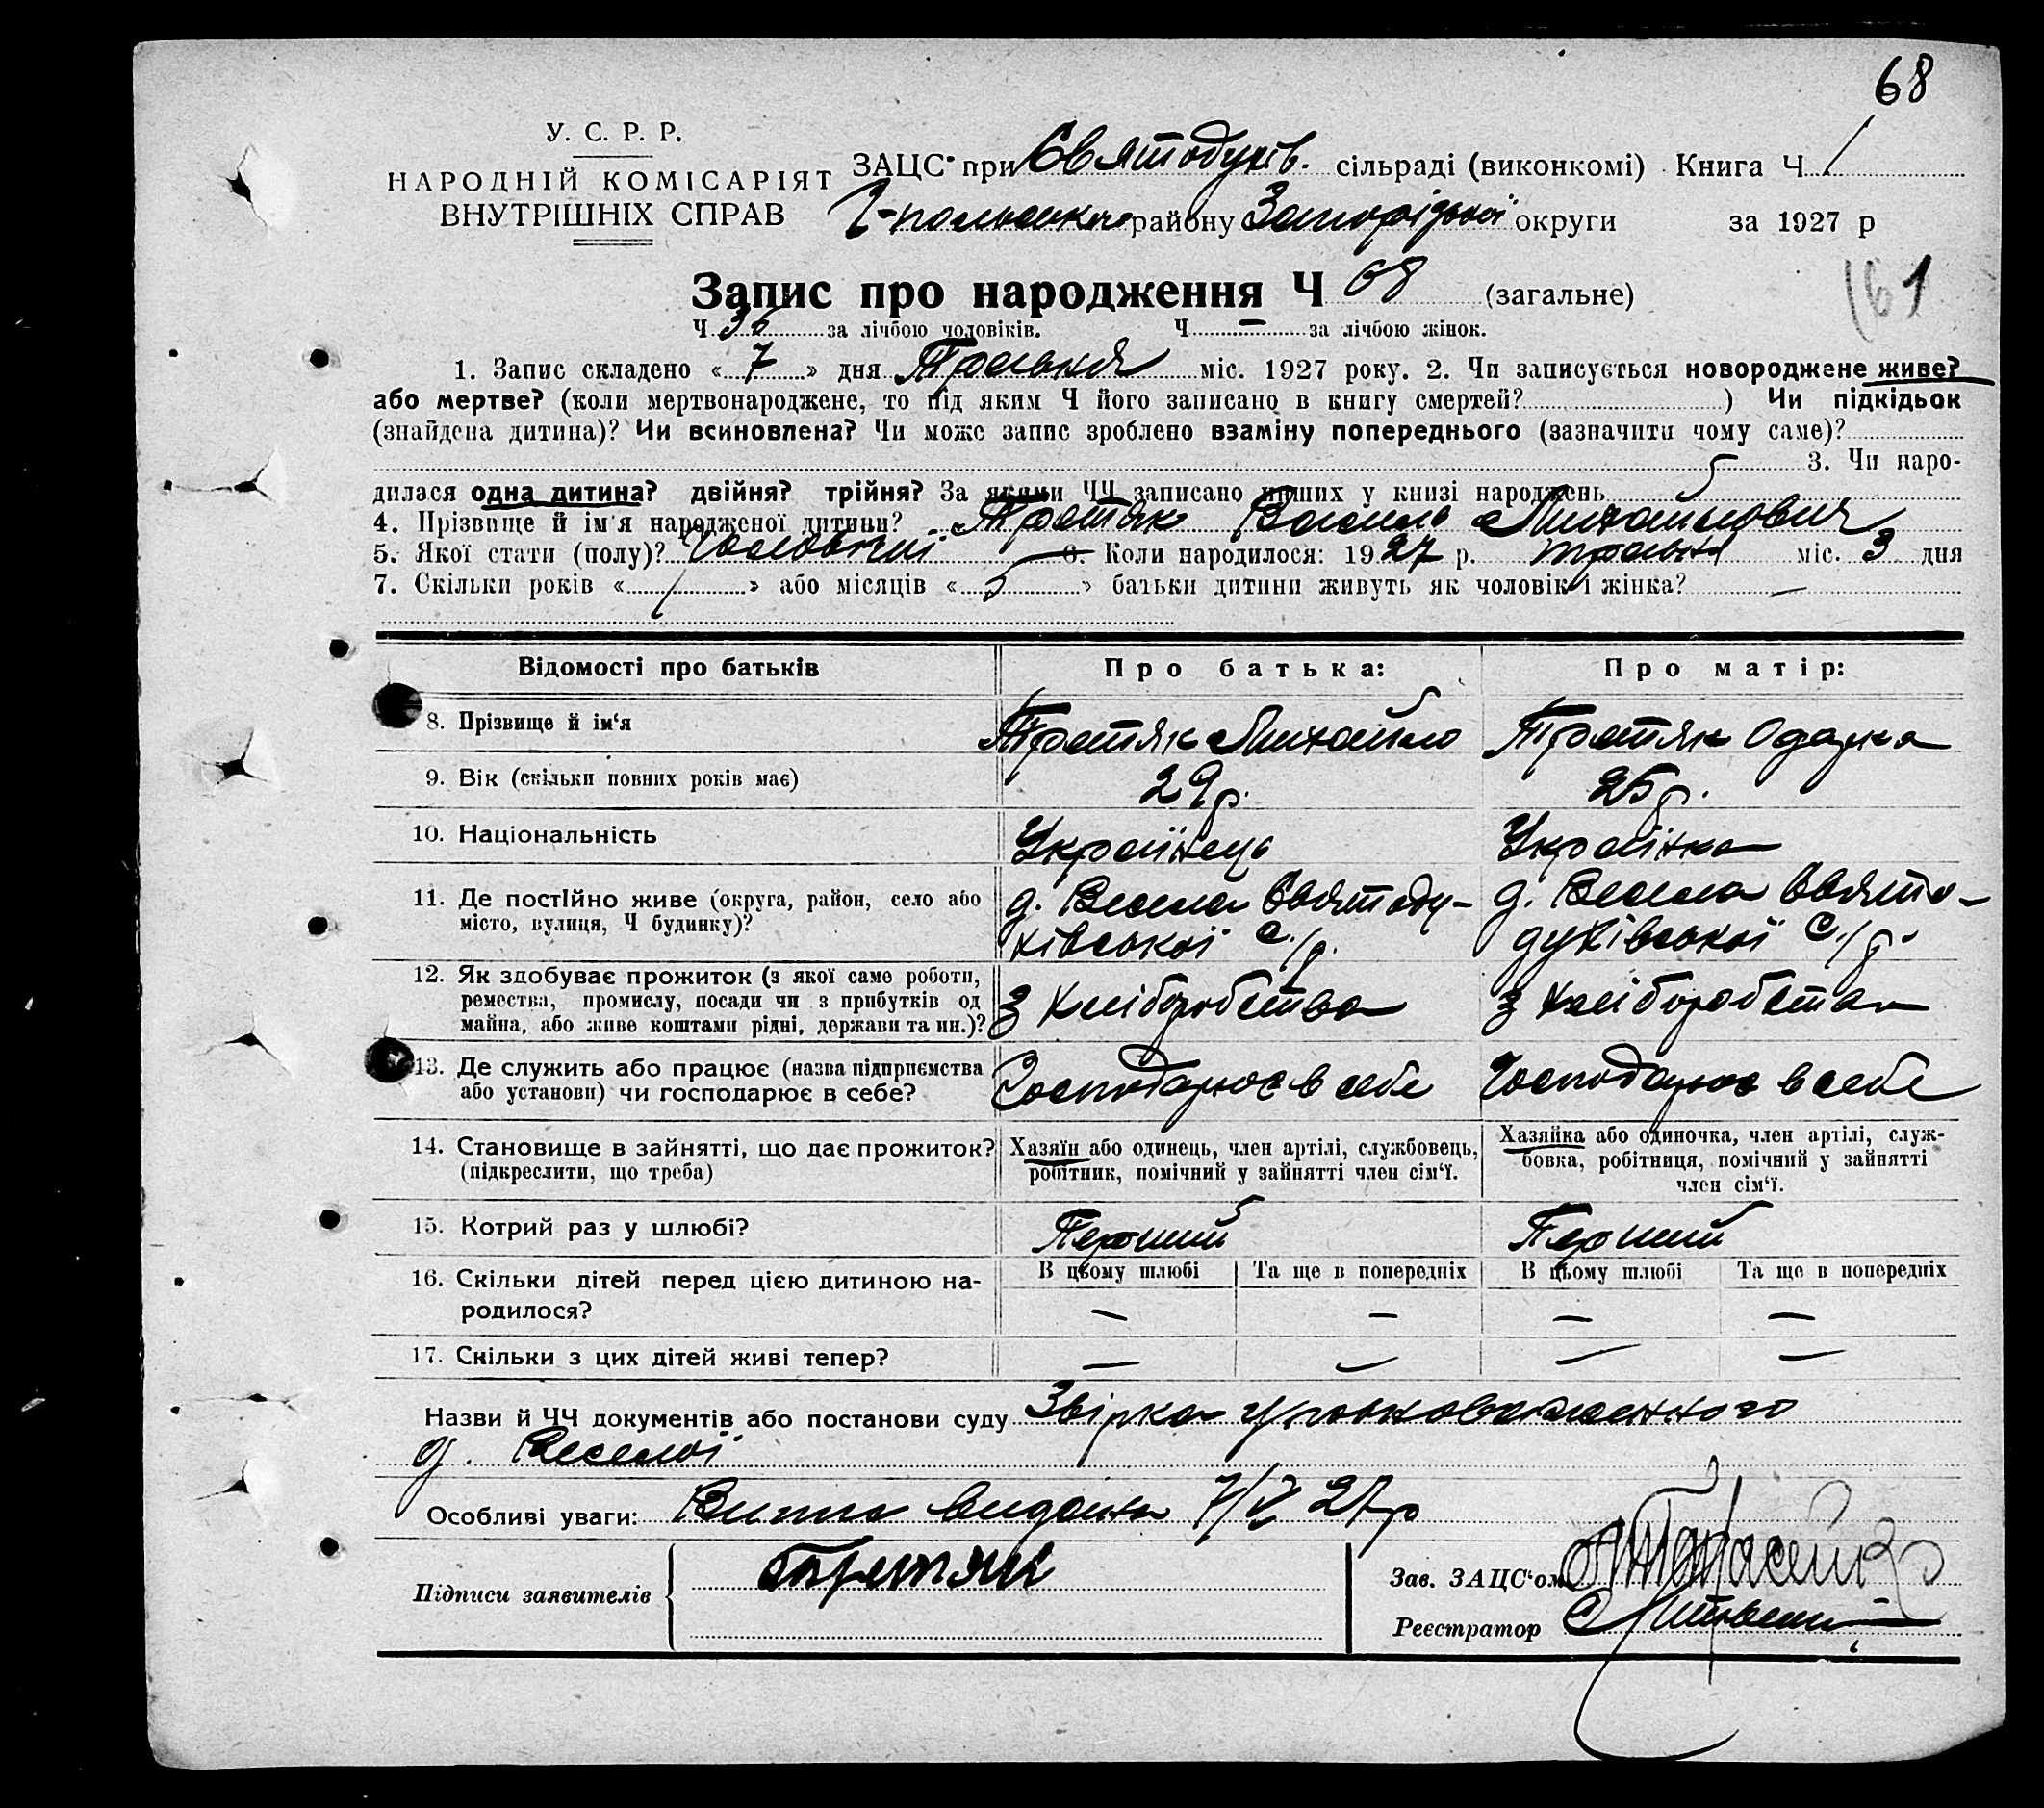 68
У. С. Р. Р.
НАРОДНІЙ КОМІСАРІЯТ
ВНУТРІШНІХ СПРАВ
ЗАЦС при Святодухів. сільраді (виконкомі) Книга Ч 1
району Запорізької округи за 1927 р
Запис про народження Ч 68 (загальне)
161
Ч. 36 за лічбою чоловіків. Ч. — за лічбою жінок.
1. Запис складено « 7 » дня Травня міс. 1927 року. 2. Чи записується новороджене живе?
або мертве? (коли мертвонароджене, то під яким Ч його записано в книгу смертей? ) Чи підкідьок
(знайдена дитина)? Чи всиновлена? Чи може запис зроблено взаміну попереднього (зазначити чому саме)?
3. Чи наро-
дилася одна дитина? двійня? трійня? За якими ЧЧ записано инших у книзі народжень
4. Прізвище й ім'я народженої дитини? Третяк Василь Михайлович
5. Якої стати (полу)? Чоловічий 6. Коли народилося: 1927 р. травня міс. 3 дня
7. Скільки років « / » або місяців « 5 » батьки дитини живуть як чоловік і жінка? —
Відомості про батьків Про батька: Про матір:
8. Прізвище й ім'я Третяк Михайло Третяк Одарка
9. Вік (скільки повних років має) 29 р. 25 р.
10. Національність Українець Українка
11. Де постійно живе (округа, район, село або місто, вулиця, Ч будинку)?
д. Весела Святоду-
хівської с./р.
д. Весела Свято-
духівської с./р.
12. Як здобуває прожиток (з якої саме роботи,
ремества, промислу, посади чи з прибутків од
майна, або живе коштами рідні, держави та ин.)?
з хліборобства з хліборобства
13. Де служить або працює (назва підприємства
або установи) чи господарює в себе?
Господарює в себе Господарює в себе
14. Становище в зайнятті, що дає прожиток?
(підкреслити, що треба)
Хазяїн або одинець, член артілі, службовець,
робітник, помічний у зайнятті член сім'ї.
Хазяйка або одиночка, член артілі, служ-
бовка, робітниця, помічний у зайнятті
член сім'ї.
15. Котрий раз у шлюбі? Перший Перший
16. Скільки дітей перед цією дитиною на-
родилося?
В цьому шлюбі Та ще в попередніх В цьому шлюбі Та ще в попередніх
— — — —
17. Скільки з цих дітей живі тепер? — — — —
Назви й ЧЧ документів або постанови суду Звірка уповноваженного
д. Веселої
Особливі уваги: Випис видана 7/V 27 р
Підписи заявителів Третяк
Зав. ЗАЦС'ом
Реєстратор